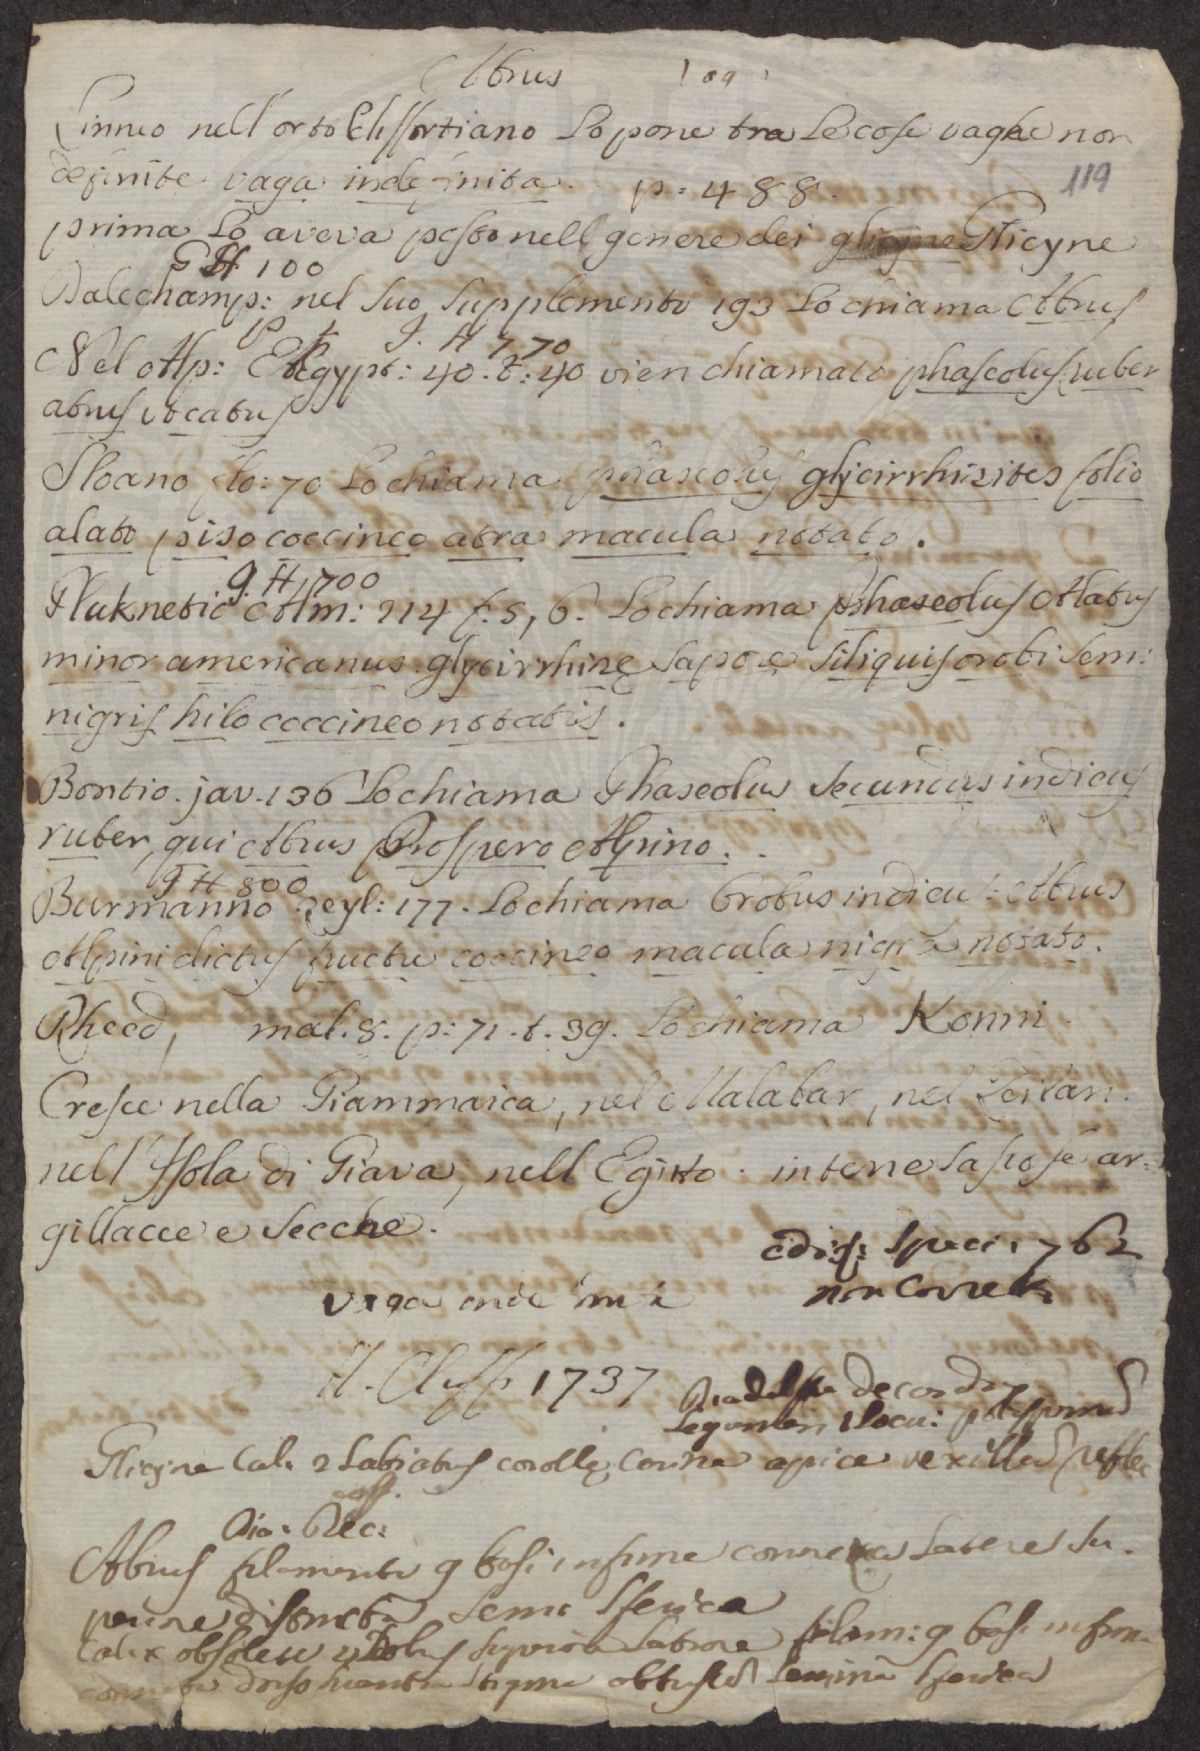 Abrus 109
Linneo nell'orto Cliffortiano Lo pone tra Le cose vaghe non
definite vaga indefinita. p: 488.
119
prima Lo aveva posto nell genere dei glicyne Glicyne
G H 100
Dalechamp: nel suo supplemento 193 Lo chiama Abrus
G. H 770
Nel Alp: Egypt: 40. t: 40 vien chiamato phaseolus ruber
abrus vocatus
Sloano flo: 70 Lo chiama phaseolus glycirrhisites folio
alato piso coccineo atra macula notato.
g. H. 700
Pluknetio Alm: 214 f. 5, 6. Lo chiama phaseolus Alatus
minor americanus glycirrhinę sapore siliquis orobi sem:
nigris hilo coccineo notatis.
Bontio. jav. 136 Lo chiama Phaseolus secundus indicus
ruber, qui Abrus Prospero Alpino.
g H 800
Burmanno zeyl: 177. Lo chiama Orobus indicus: Abrus
Alpini dictus fructu coccineo macula nigra notato.
Rheed, mal. 8. p: 71. t. 39. Lo chiama Konni.
Cresce nella Giammaica, nel Malabar, nel Zeilan.
nell'Isola di Giava, nell Egitto. in terre sassose ar=
gillacee e secche.
edis: speci. 762
non corretta
vaga inde
H. Cliff 1737
Diadelfia decandr
Legumen 1 locu: polispermũ
Glicyne Cal. 2 Labiatus corollę carina apice vexillũ reflec
Dia: Dec:
Abrus filamenta 9 basi infime connexa Latere su.
periore distincta semi sferica
Calix obsolete 4 Lobus superior Latiore filam: 9 basi
dorso stigma obtusũ semina sferica